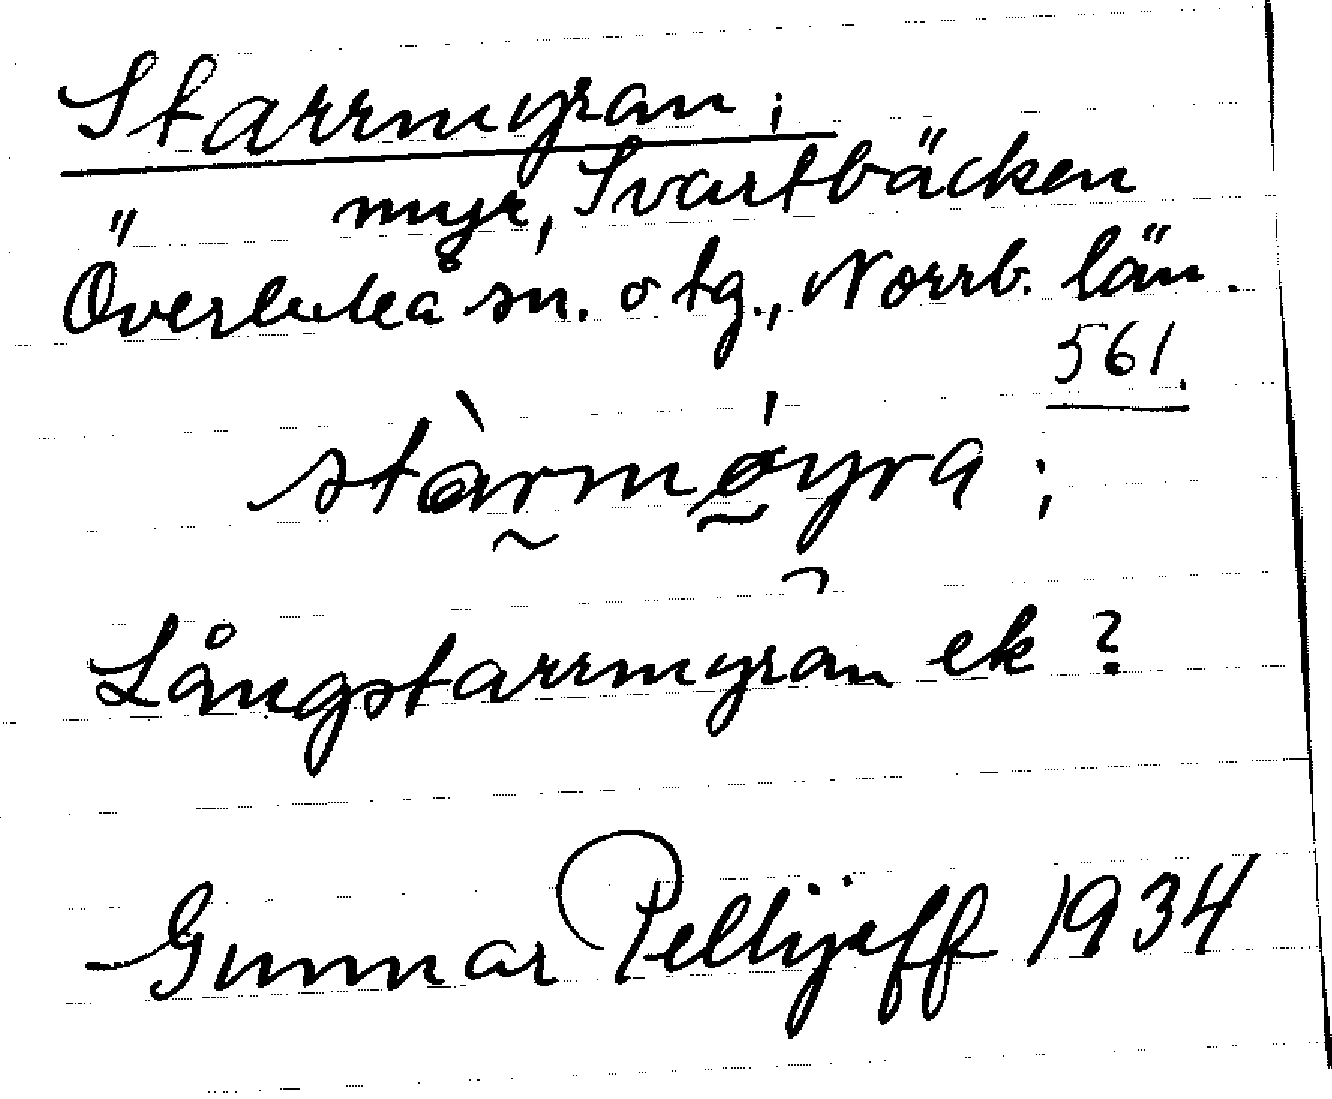 Starrmyran;
myr, Svartbäcken
Överluleå sn. o tg., Norrb. län.
561.
stàrmǿyra;
Långstarrmyran ek?
Gunnar Pellijeff 1934